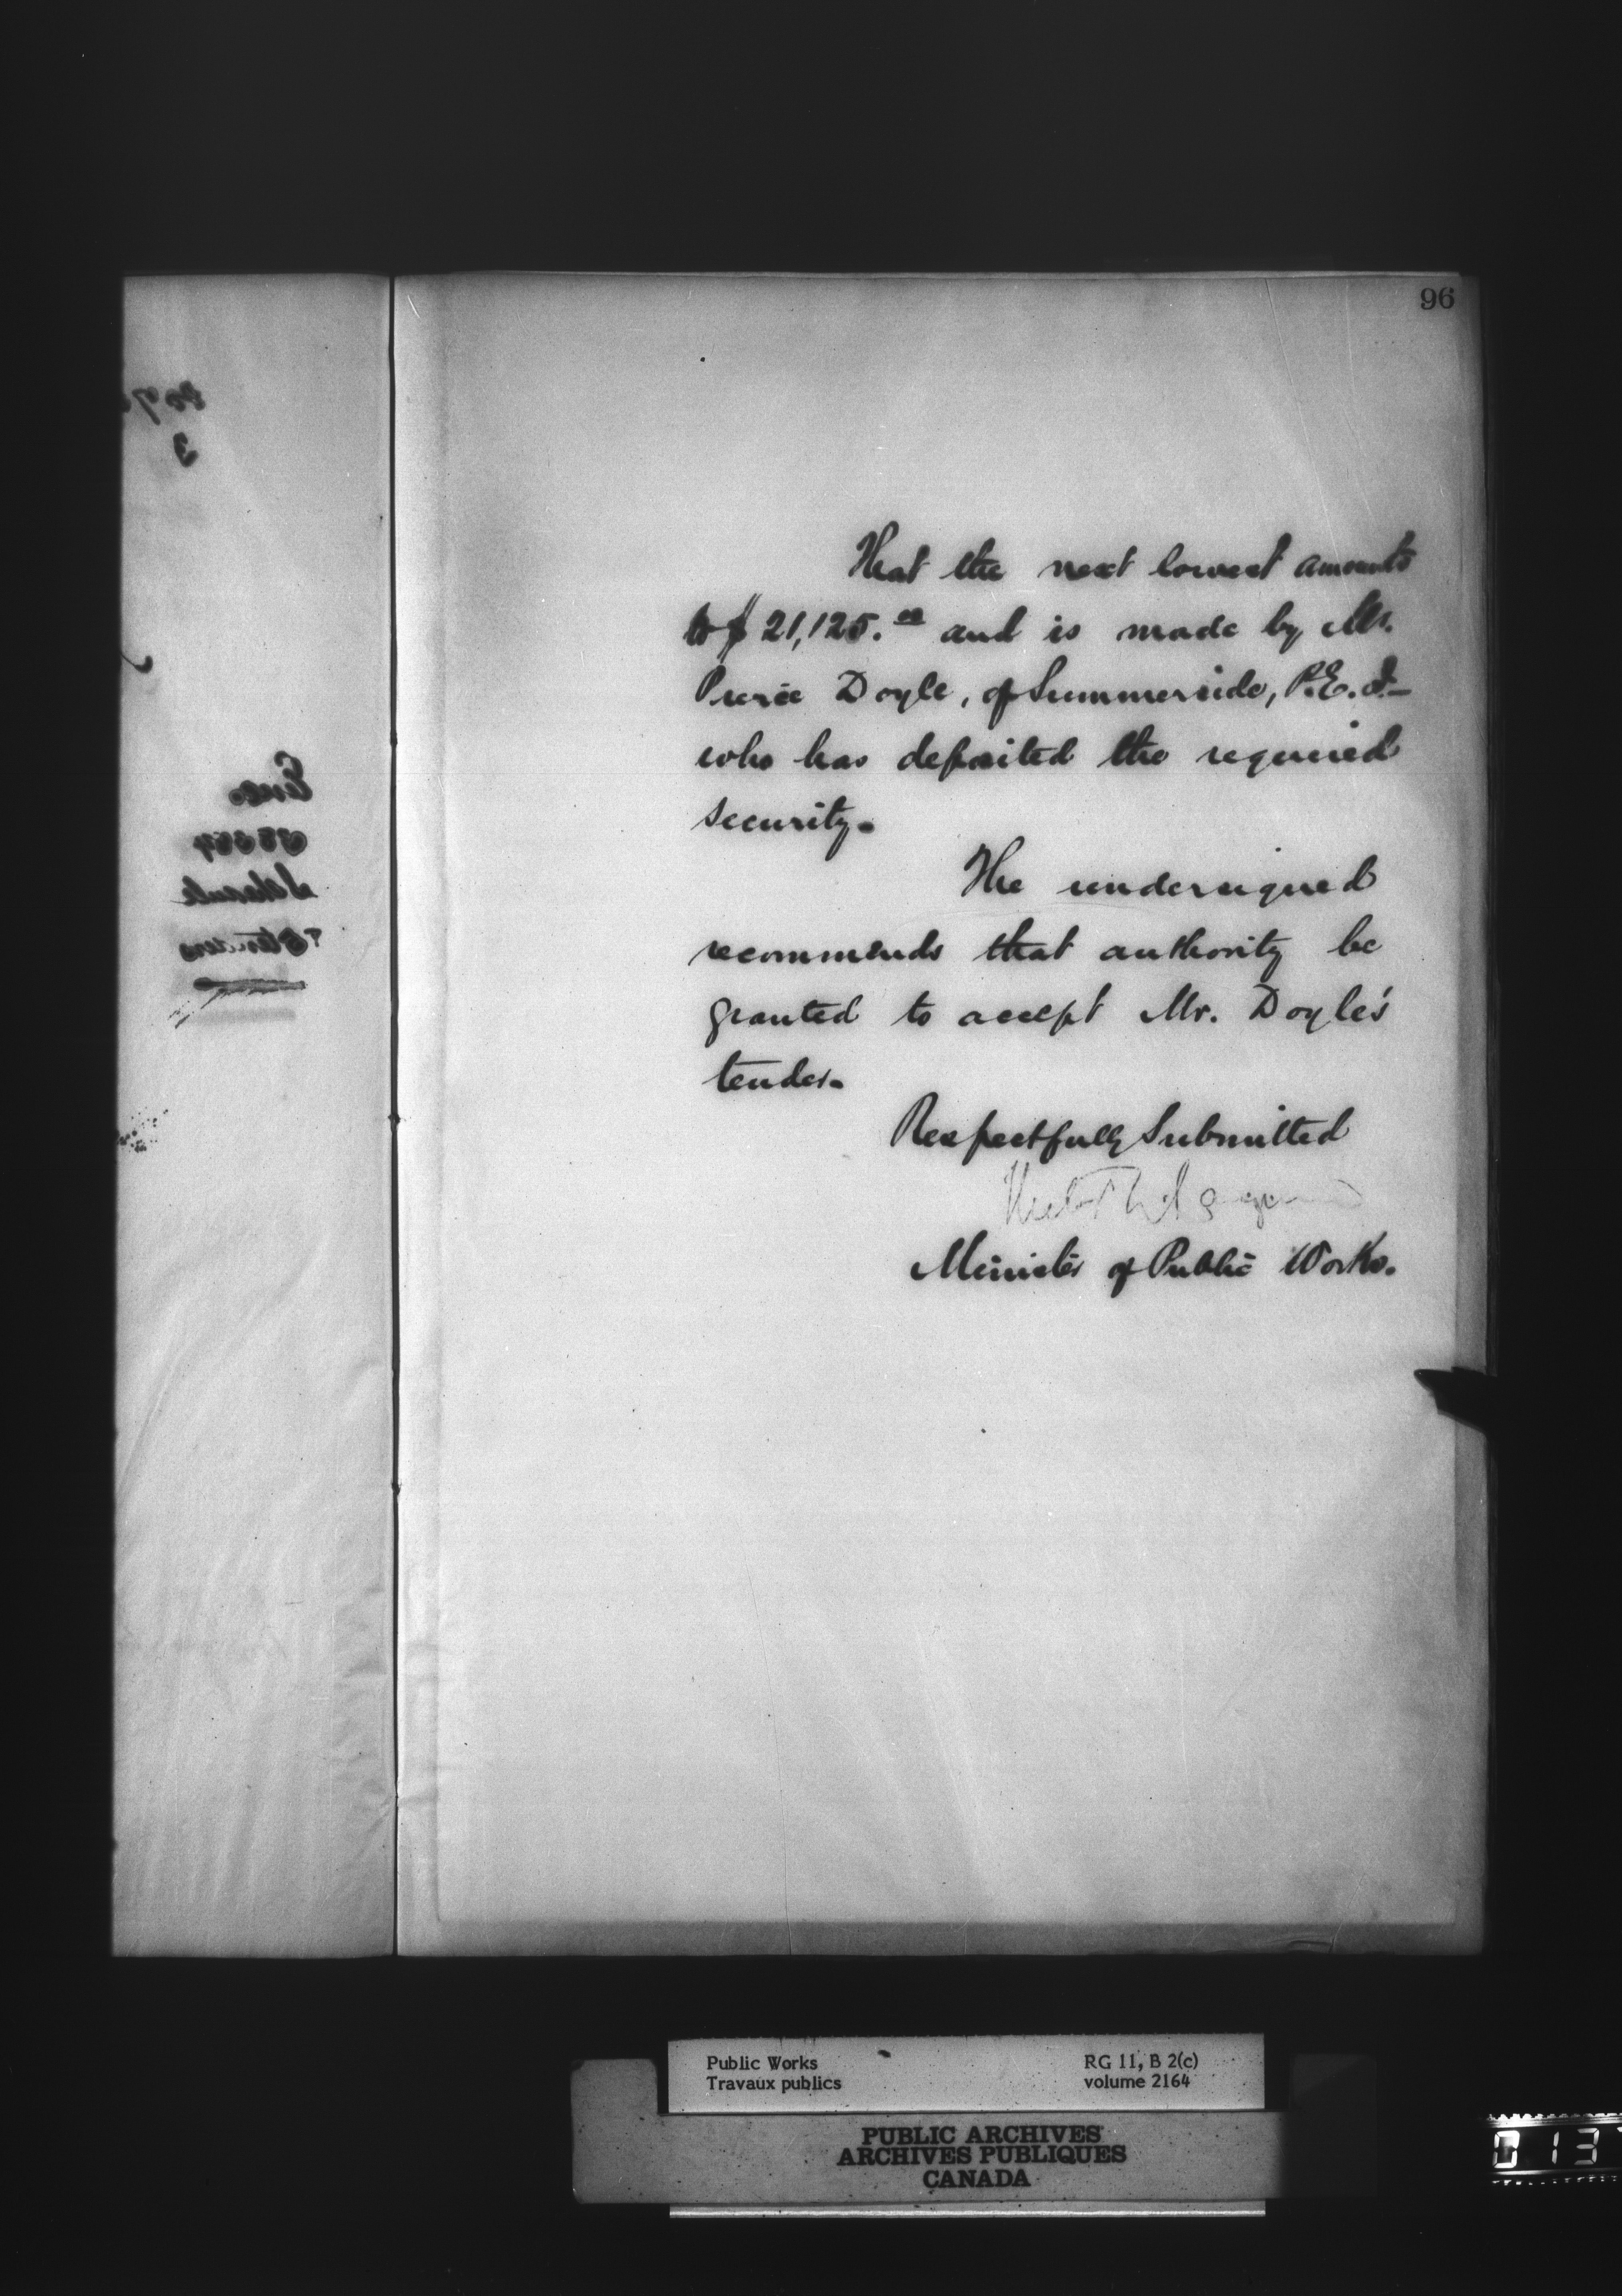 96
That the next lowest amounts
to $ 21,125.00 and is made by Mr.
Pierce Doyle, of Summerside, P.E.I.
who has deposited the required
security.
The undersigned
recommends that authority be
granted to accept Mr. Doyle's
tender.
Respectfully Submitted
Minister of Public Works.
Public Works
Travaux publics
RG 11, B 2(c)
volume 2164
PUBLIC ARCHIVES
ARCHIVES PUBLIQUES
CANADA
013